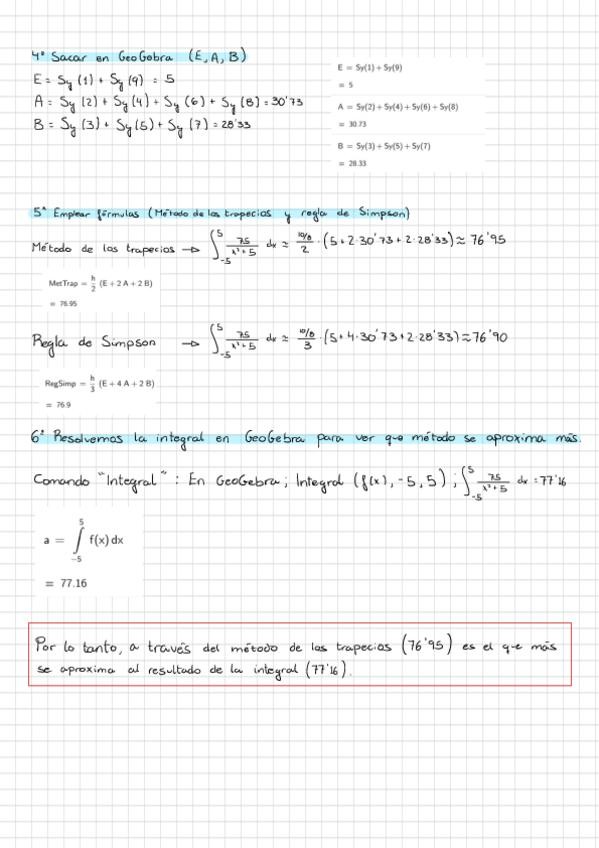 4º Sacar en GeoGebra (E, A, B)
E = Sy (1) + Sy (9) = 5
A = Sy (2) + Sy (4) + Sy (6) + Sy (8) = 30'73
B = Sy (3) + Sy (5) + Sy (7) = 28'33
E = Sy(1) + Sy(9)
= 5
A = Sy(2) + Sy(4) + Sy(6) + Sy(8)
= 30.73
B = Sy(3) + Sy(5) + Sy(7)
= 28.33
5º Emplear fórmulas (Método de los trapecios y regla de Simpson)
Método de los trapecios → ∫_-5^5 75/(x²+5) dx ≈ (10/8)/2 · (5 + 2·30'73 + 2·28'33) ≈ 76'95
MetTrap = h/2 (E + 2 A + 2 B)
= 76.95
Regla de Simpson → ∫_-5^5 75/(x²+5) dx ≈ (10/8)/3 · (5 + 4·30'73 + 2·28'33) ≈ 76'90
RegSimp = h/3 (E + 4 A + 2 B)
= 76.9
6º Resolvemos la integral en GeoGebra para ver que método se aproxima más.
Comando "Integral" : En GeoGebra; Integral (f(x), -5, 5) ; ∫_-5^5 75/(x²+5) dx = 77'16
a = ∫_-5^5 f(x) dx
= 77.16
Por lo tanto, a través del método de los trapecios (76'95) es el que más
se aproxima al resultado de la integral (77'16).